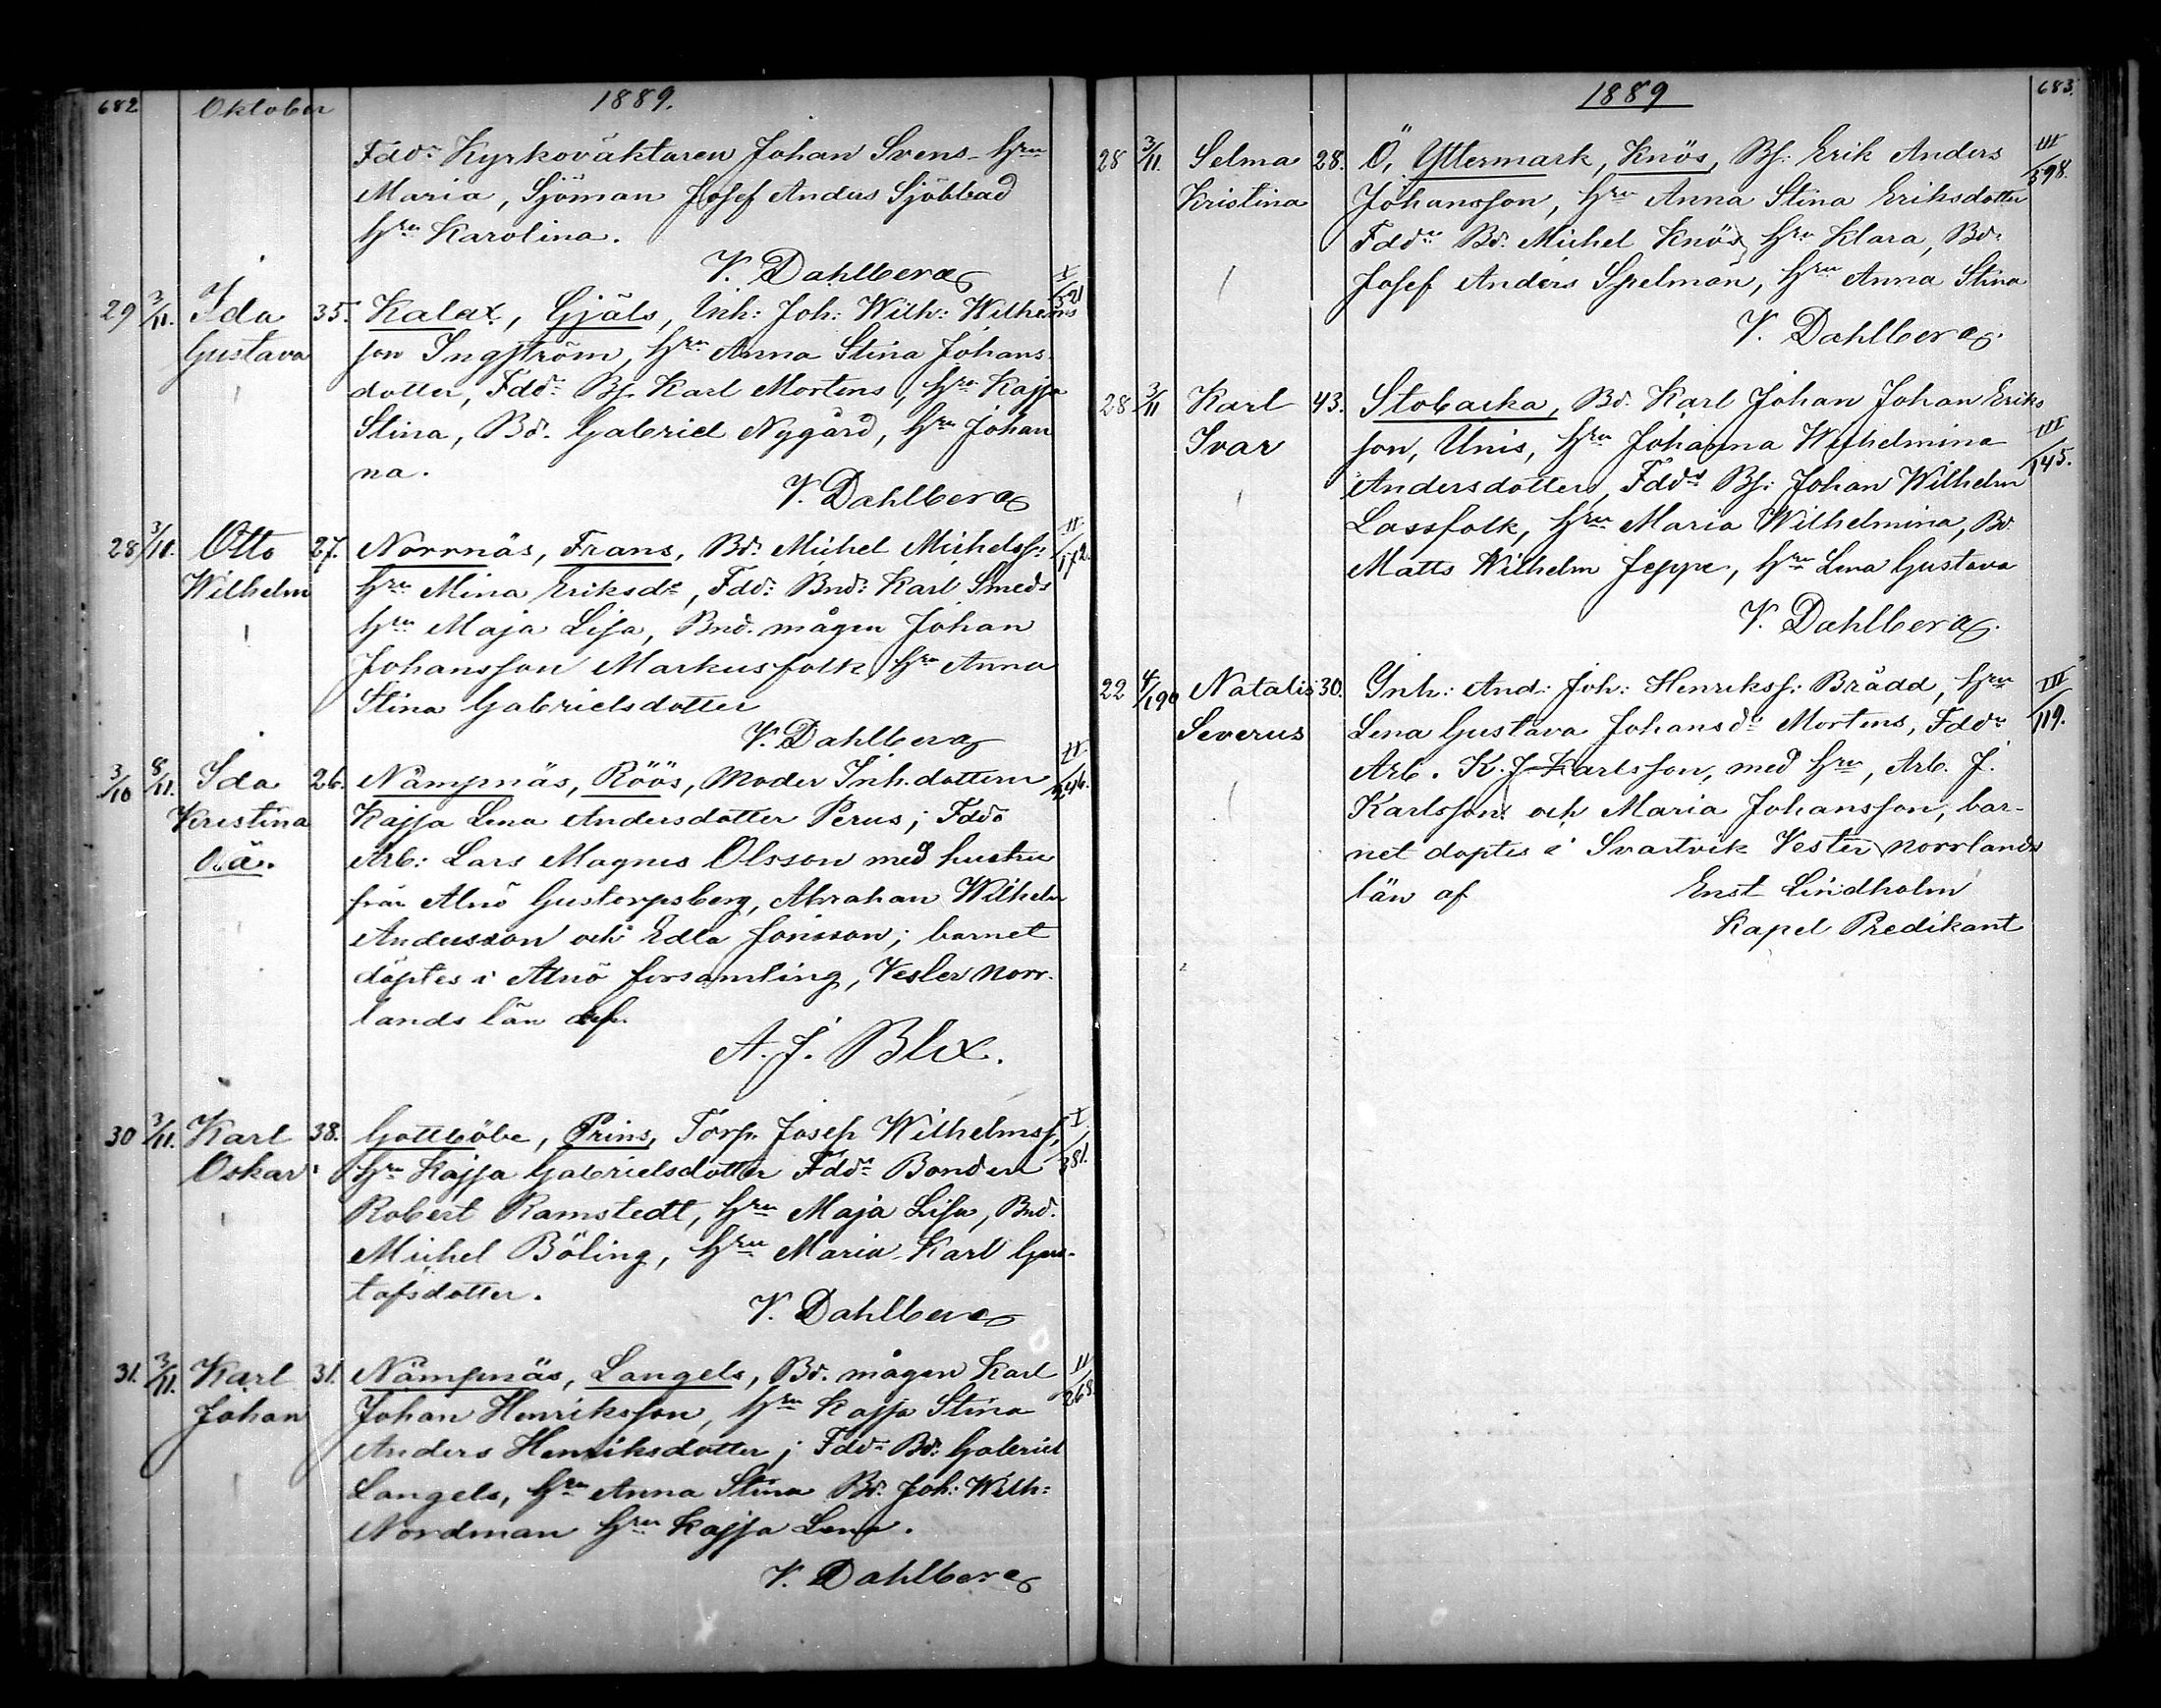 682 Oktober 1889.
Fddr Kyrkoväktaren Johan Svens hru
Maria, Sjöman Josef Anders Sjöblad
hru Karolina.
V. Dahlberg
29 3/11. Ida 35. Kalax, Gjäls, Inh: Joh: Wilh: Wilhelms X/521
Gustava son Ingström, hru Anna Stina Johans
dotter, Fddr Bs. Karl Mortens, hru Kajsa
Stina, Bd. Gabriel Nygård, hru Johan
na.
V. Dahlberg
28 3/11. Otto 27. Norrnäs, Frans, Bd. Michel Michelss: II/172.
Wilhelm hru Mina Eriksdr, Fddr Bnd: Karl Smeds
hru Maja Lisa, Bnd. mågen Johan
Johansson Markusfolk, hru Anna
Stina Gabrielsdotter
V. Dahlberg
3/10 8/11. Ida 26. Nämpnäs, Röös, Moder Inh. dottern II/546.
Kristina Kajsa Lena Andersdotter Perus; Fddr
Oä. Arb: Lars Magnus Olsson med hustru
från Alnö Gustorpsberg, Abrahan Wilhelm
Andersson och Edla Jonsson; barnet
döptes i Alnö forsamling, Vester Norr-
lands län af.
A. J. Blix.
30 3/11. Karl 38. Gottböle, Prins, Torp. Josef Wilhelmss, I/381.
Oskar hru Kajsa Gabrielsdotter Fddr Bonden
Robert Ramstedt, hru Maja Lisa, Bnd.
Michel Böling, hru Maria Karl Gus-
tafsdotter.
V. Dahlberg
31. 3/11. Karl 31. Nämpnäs, Langels, Bd. mågen Karl II/268.
Johan Johan Henriksson, hru Kajsa Stina
Anders Henriksdotter; Fddr Bd: Gabriel
Langels, hru Anna Stina Bd. Joh: Wilh:
Nordman hru Kajsa Lena.
V. Dahlberg
1889 683.
28 3/11. Selma 28. Ö, Yttermark, Knös, Bs: Erik Anders III/598.
Kristina Johansson, hru Anna Stina Eriksdotter
Fddr Bd. Michel Knös, hru Klara, Bd.
Josef Anders Spelman, hru Anna Stina
V. Dahlberg.
28 3/11 Karl 43. Stobacka, Bd. Karl Johan Johan Eriks
Ivar son, Unis, hru Johanna Wilhelmina III/145.
Andersdotter, Fddr Bs: Johan Wilhelm
Lassfolk, hru Maria Wilhelmina, Bd.
Matts Wilhelm Jeppe, hru Lena Gustava
V. Dahlberg.
22 4/190 Natalis 30. Inh: And: Joh: Henrikss: Brådd, hru III/119.
Severus Lena Gustava Johansdr Mortens, Fddr
Arb. K. J Karlsson, med hru, Arb. J.
Karlsson och Maria Johansson, bar-
net doptes i Svartvik Vester norrlands
län af Enst Lindholm
Kapel Predikant